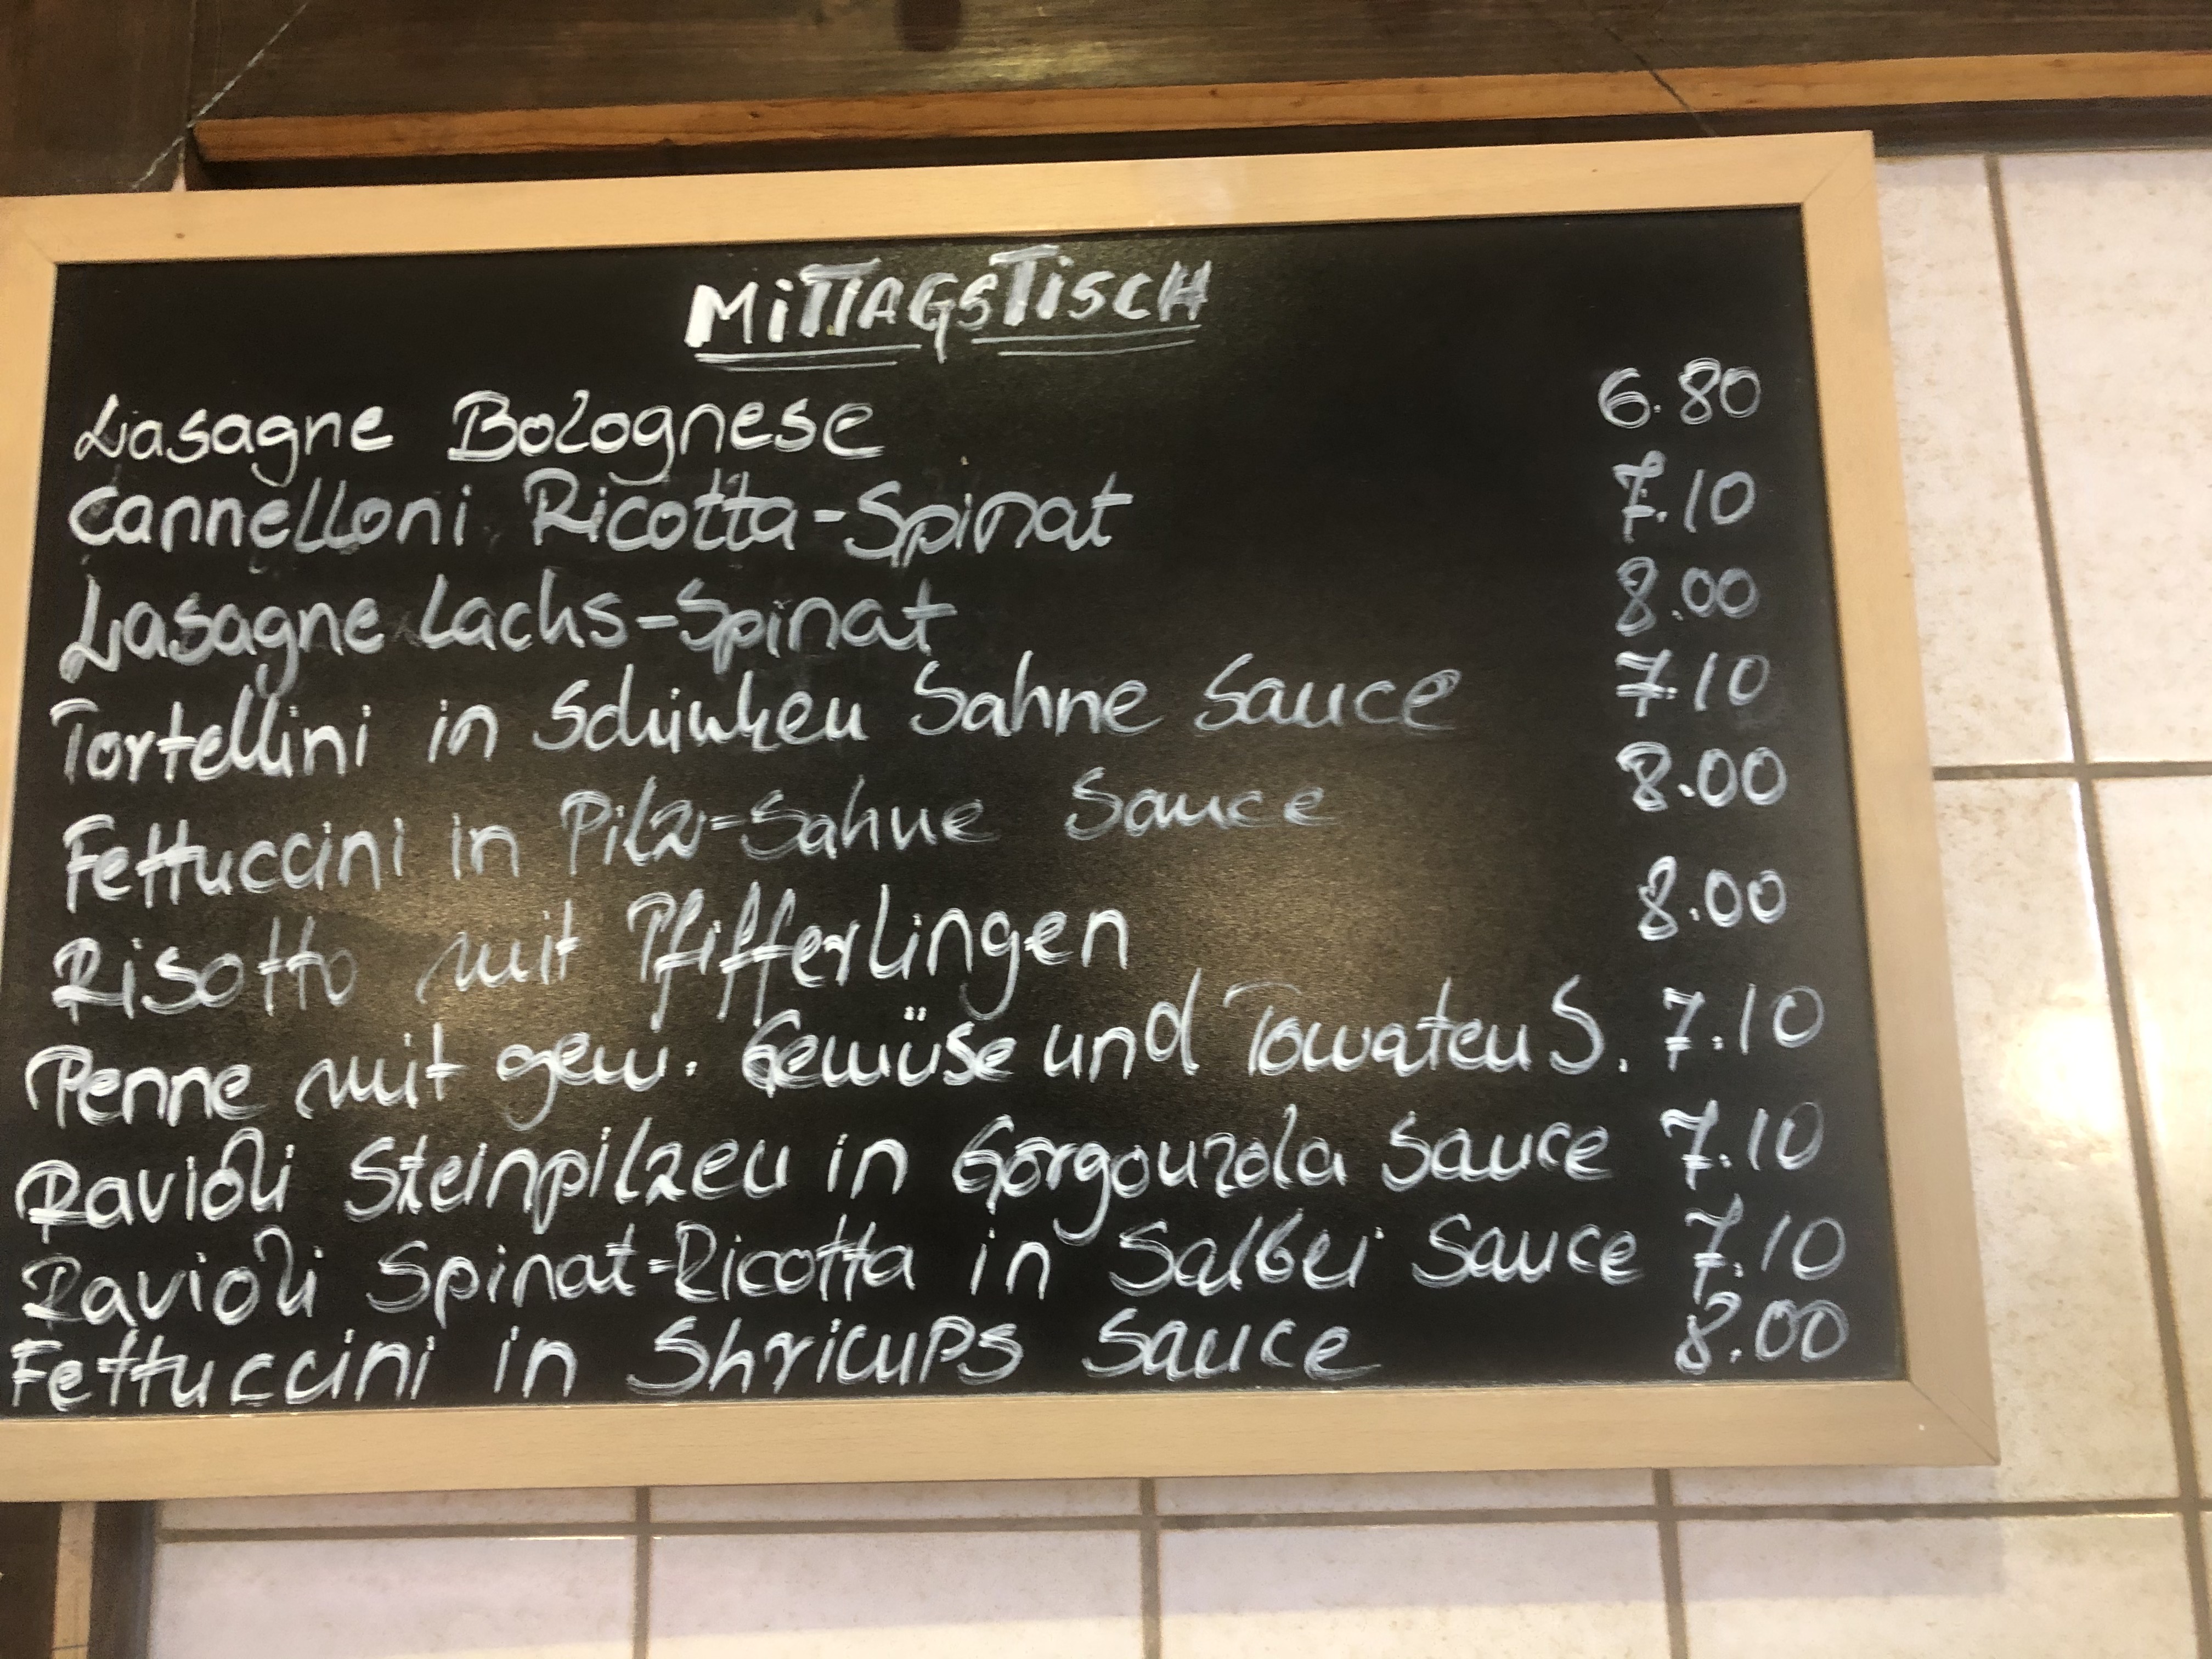 MiTTAGSTiSCH
Lasagne Bolognese 6.80
Cannelloni Ricotta-Spinat 7.10
Lasagne Lachs-Spinat 8.00
Tortellini in Schinken Sahne Sauce 7.10
Fettuccini in Pilz-Sahne Sauce 8.00
Risotto mit Pfifferlingen 8.00
Penne mit gem. Gemüse und Tomaten S. 7.10
Ravioli Steinpilzen in Gorgonzola Sauce 7.10
Ravioli Spinat-Ricotta in Salbei Sauce 7.10
Fettuccini in Shrimps Sauce 8.00